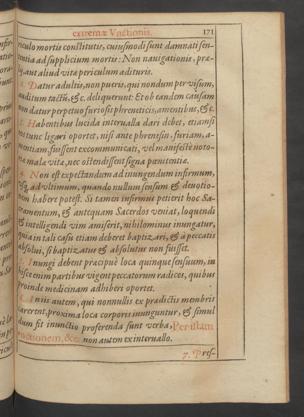 extremæ Vnctionis. 171
riculo mortis constitutis, cuiusmodi sunt damnati sen-
tentia ad supplicium mortis: Non nauigationis, præ-
lij, aut aliud vitæ periculum adituris.
2. Datur adultis, non pueris, qui nondum per visum,
auditum tactũ, &c. deliquerunt. Et ob eandem causam
non datur perpetuo furiosis phreneticis, amentibus, & c.
3. Habentibus lucida interualla dari debet, etiamsi
tunc ligari oportet, nisi ante phrenesin, furiam, a-
mentiam, fuissent excommunicati, vel manifestè noto-
mala vita, nec ostendissent signa pœnitentiæ.
4. Non est expectandum ad inungendum infirmum,
ad vltimum, quando nullum sensum & deuotio-
nem habere potest. Si tamen infirmus petierit hoc Sa-
cramentum, & antequam Sacerdos veniat, loquendi
& intelligendi vim amiserit, nihilominus inungatur,
quia in tali casu etiam deberet baptizari, & à peccatis
absolui, si baptizatus & absolutus non fuisset.
Inungi debent præcipuè loca quinque sensuum, in
hisce enim partibus vigent peccatorum radices, quibus
proinde medicinam adhiberi oportet.
In iis autem, qui nonnullis ex prædictis membris
carerent, proxima loca corporis inunguntur, & simul
dum fit inunctio proferenda sunt verba, Per istam
vnctionem, &c. non autem ex interuallo.
7. Pres-